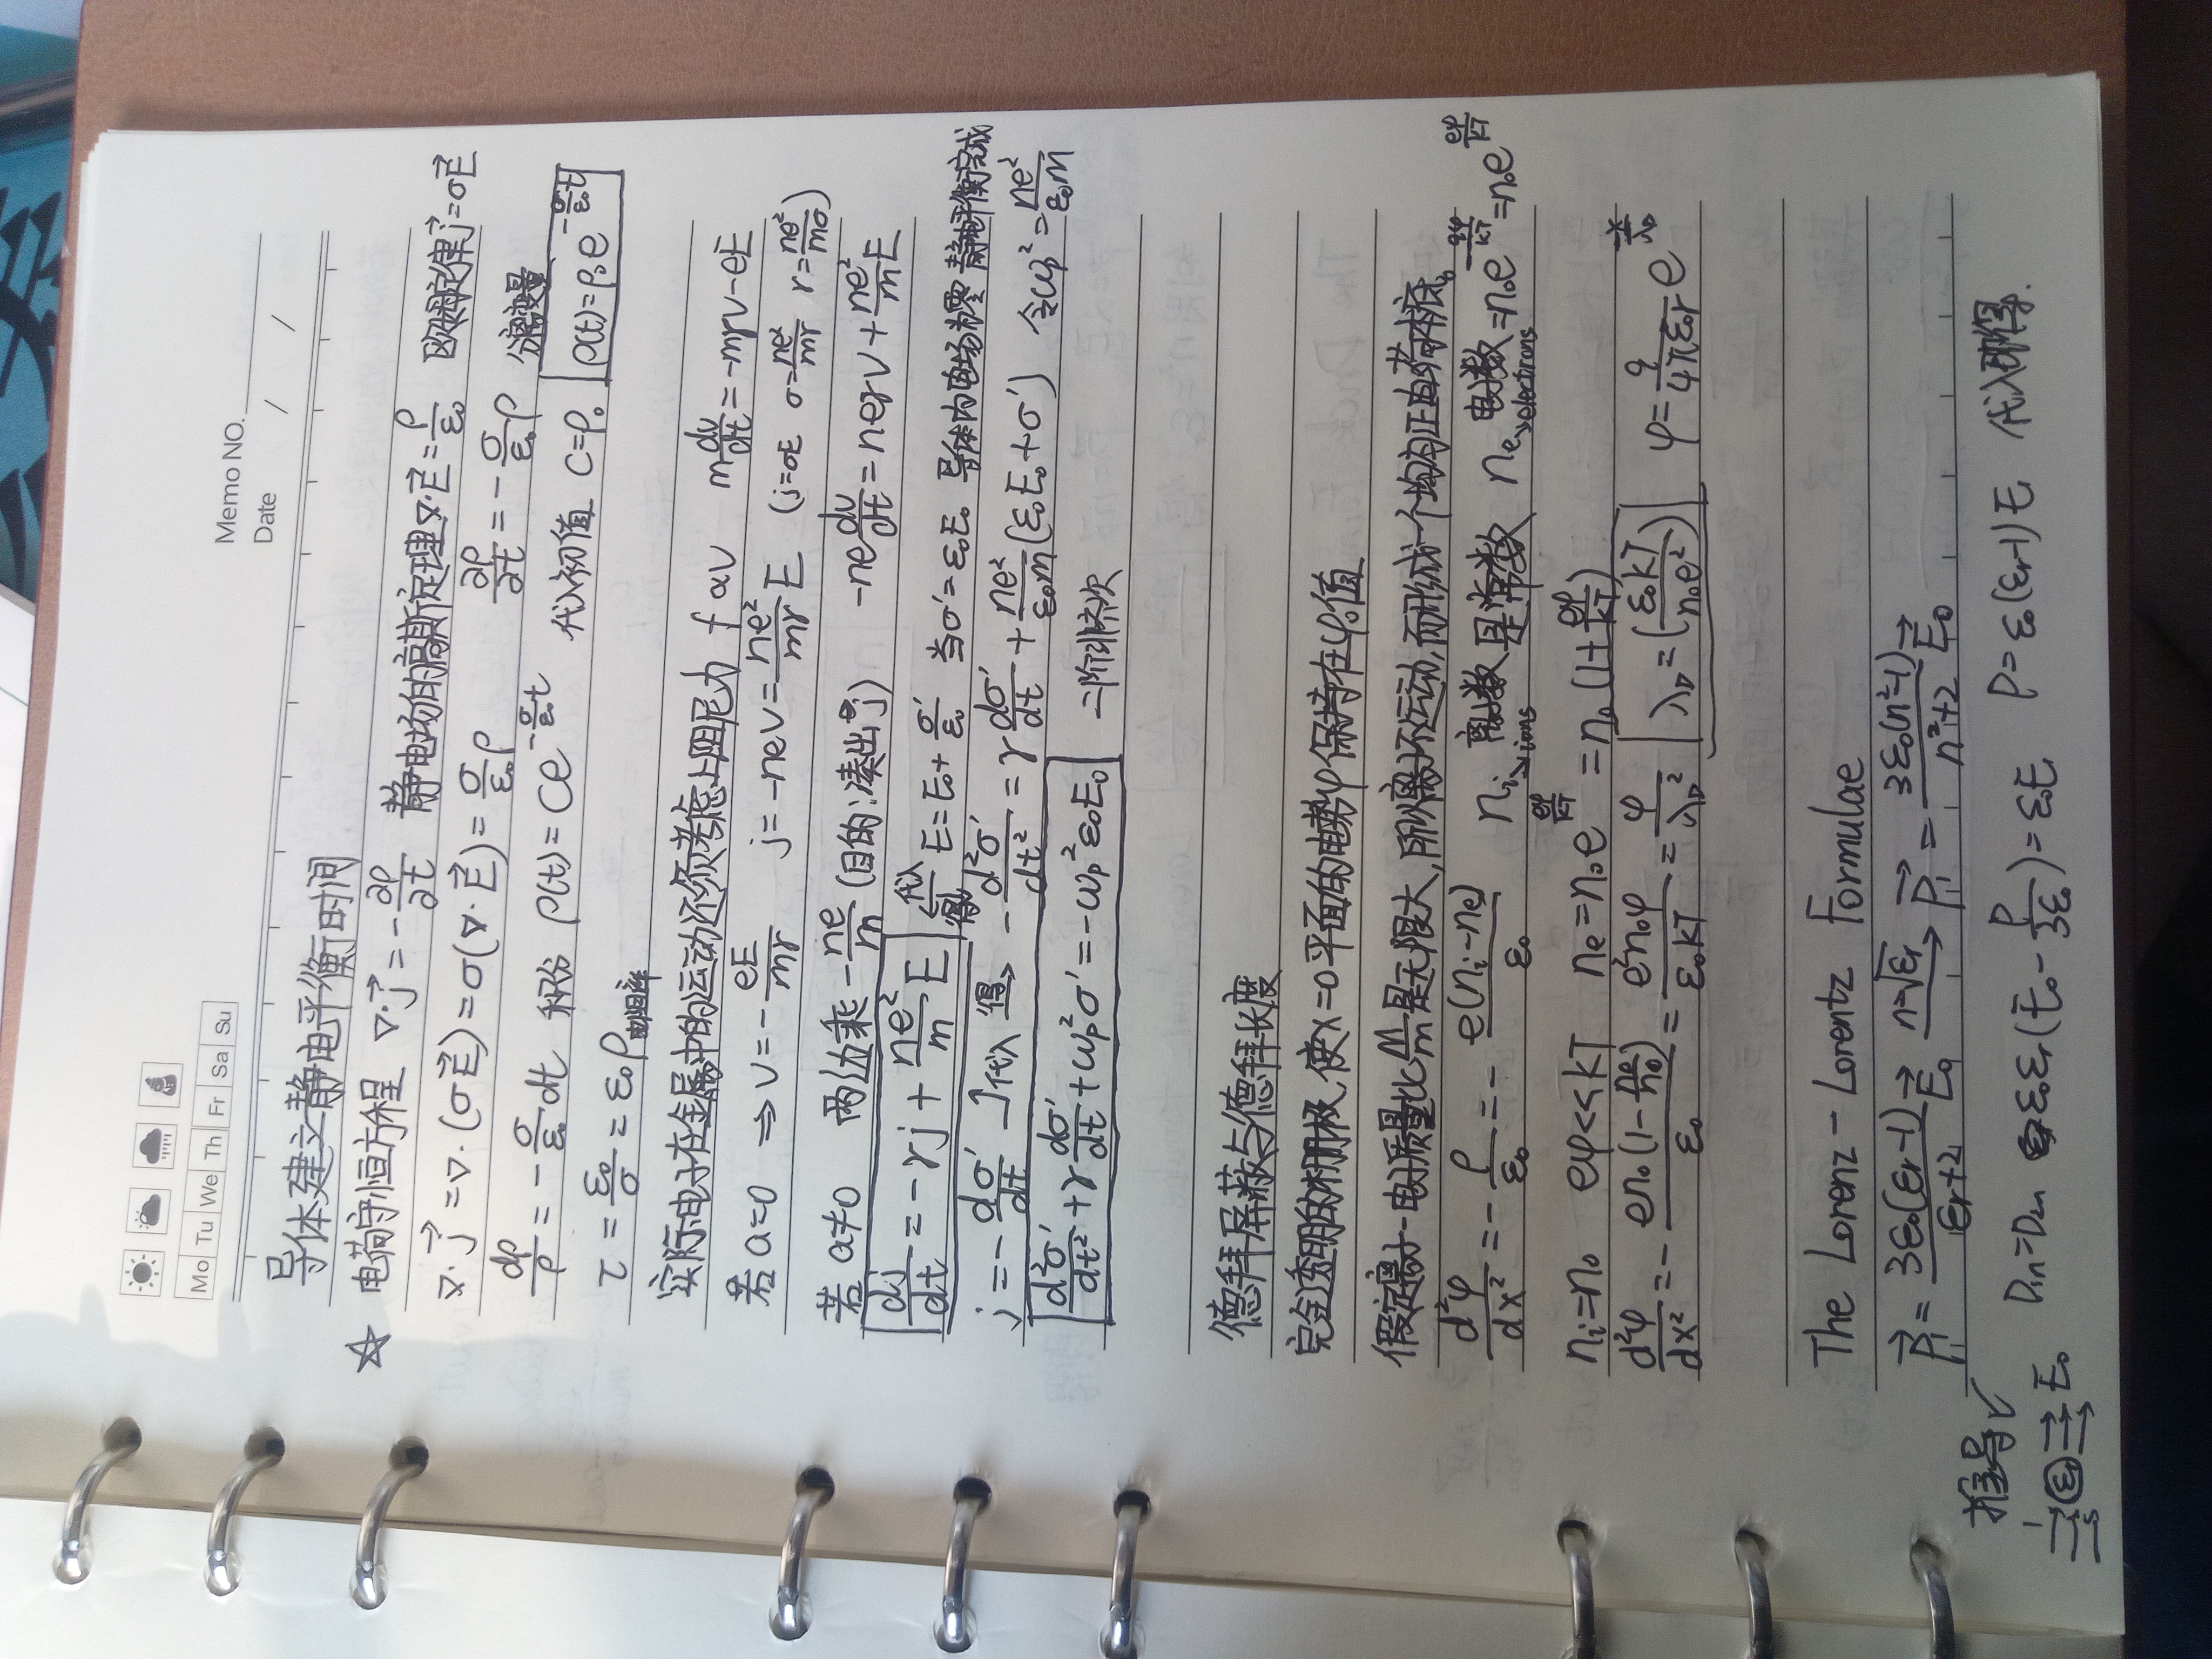 Memo NO.
Mo Tu We Th Fr Sa Su
Date / /
导体建立静电平衡时间
☆ 电荷守恒方程 ∇·j⃗ = -∂ρ/∂t 静电场的高斯定理∇·E⃗ = ρ/ε₀ 欧姆定律j⃗=σE⃗
∇·j⃗ = ∇·(σE⃗) = σ(∇·E⃗) = σ/ε₀ ρ ∂ρ/∂t = -σ/ε₀ ρ 分离变量
dρ/ρ = -σ/ε₀ dt 积分 ρ(t) = Ce^(-σ/ε₀ t) 代入初值 C=ρ₀ ρ(t)=ρ₀e^(-σ/ε₀ t)
τ = ε₀/σ = ε₀ρ电阻率
实际电子在金属中的运动还须考虑上阻尼力 f∝v m dv/dt = -mγv-eE
若a=0 ⇒ v = -eE/mγ j = -nev = ne²/mγ E (j=σE σ=ne²/mγ γ=ne²/mσ)
若a≠0 两边乘 -ne/m (目的:凑出j) -ne dv/dt = neγv + ne²/m E
dj/dt = -γj + ne²/m E 代入得 E=E₀+σ'/ε₀ 当σ'=ε₀E₀ 导体内电场为零 静电平衡完成
j = -dσ'/dt 代入得→ -d²σ'/dt² = γ dσ'/dt + ne²/ε₀m (ε₀E₀+σ') 令ωp² = ne²/ε₀m
d²σ'/dt² + γ dσ'/dt + ωp²σ' = -ωp²ε₀E₀ 二阶非齐次
德拜屏蔽与德拜长度
完全透明的栅极,使x=0平面的电势φ保持在φ₀值
假定离子-电子质量比M/m是无限大,所以离子不运动,而形成一个均匀正电荷本底。
d²φ/dx² = -ρ/ε₀ = -e(ni-ne)/ε₀ ni→ions 离子数是常数 ne→electrons 电子数=n₀e^(-qφ/kT)=n₀e^(eφ/kT)
ni=n₀ eφ<<kT ne=n₀e^(eφ/kT) = n₀(1+eφ/kT)
d²φ/dx² = -en₀(1-ne/n₀)/ε₀ = e²n₀φ/ε₀kT = φ/λD² λD=(ε₀kT/n₀e²) φ = q/4πε₀r e^(-x/λD)
The Lorenz - Lorentz Formulae
P₁⃗ = 3ε₀(εr-1)/(εr+2) E₀⃗ n=√εr→ P₁⃗ = 3ε₀(n²-1)/(n²+2) E₀⃗
推导✓
E₀ Din=Dout ε₀εr(E₀-P/3ε₀)=ε₀E P=ε₀(εr-1)E 代入即得.